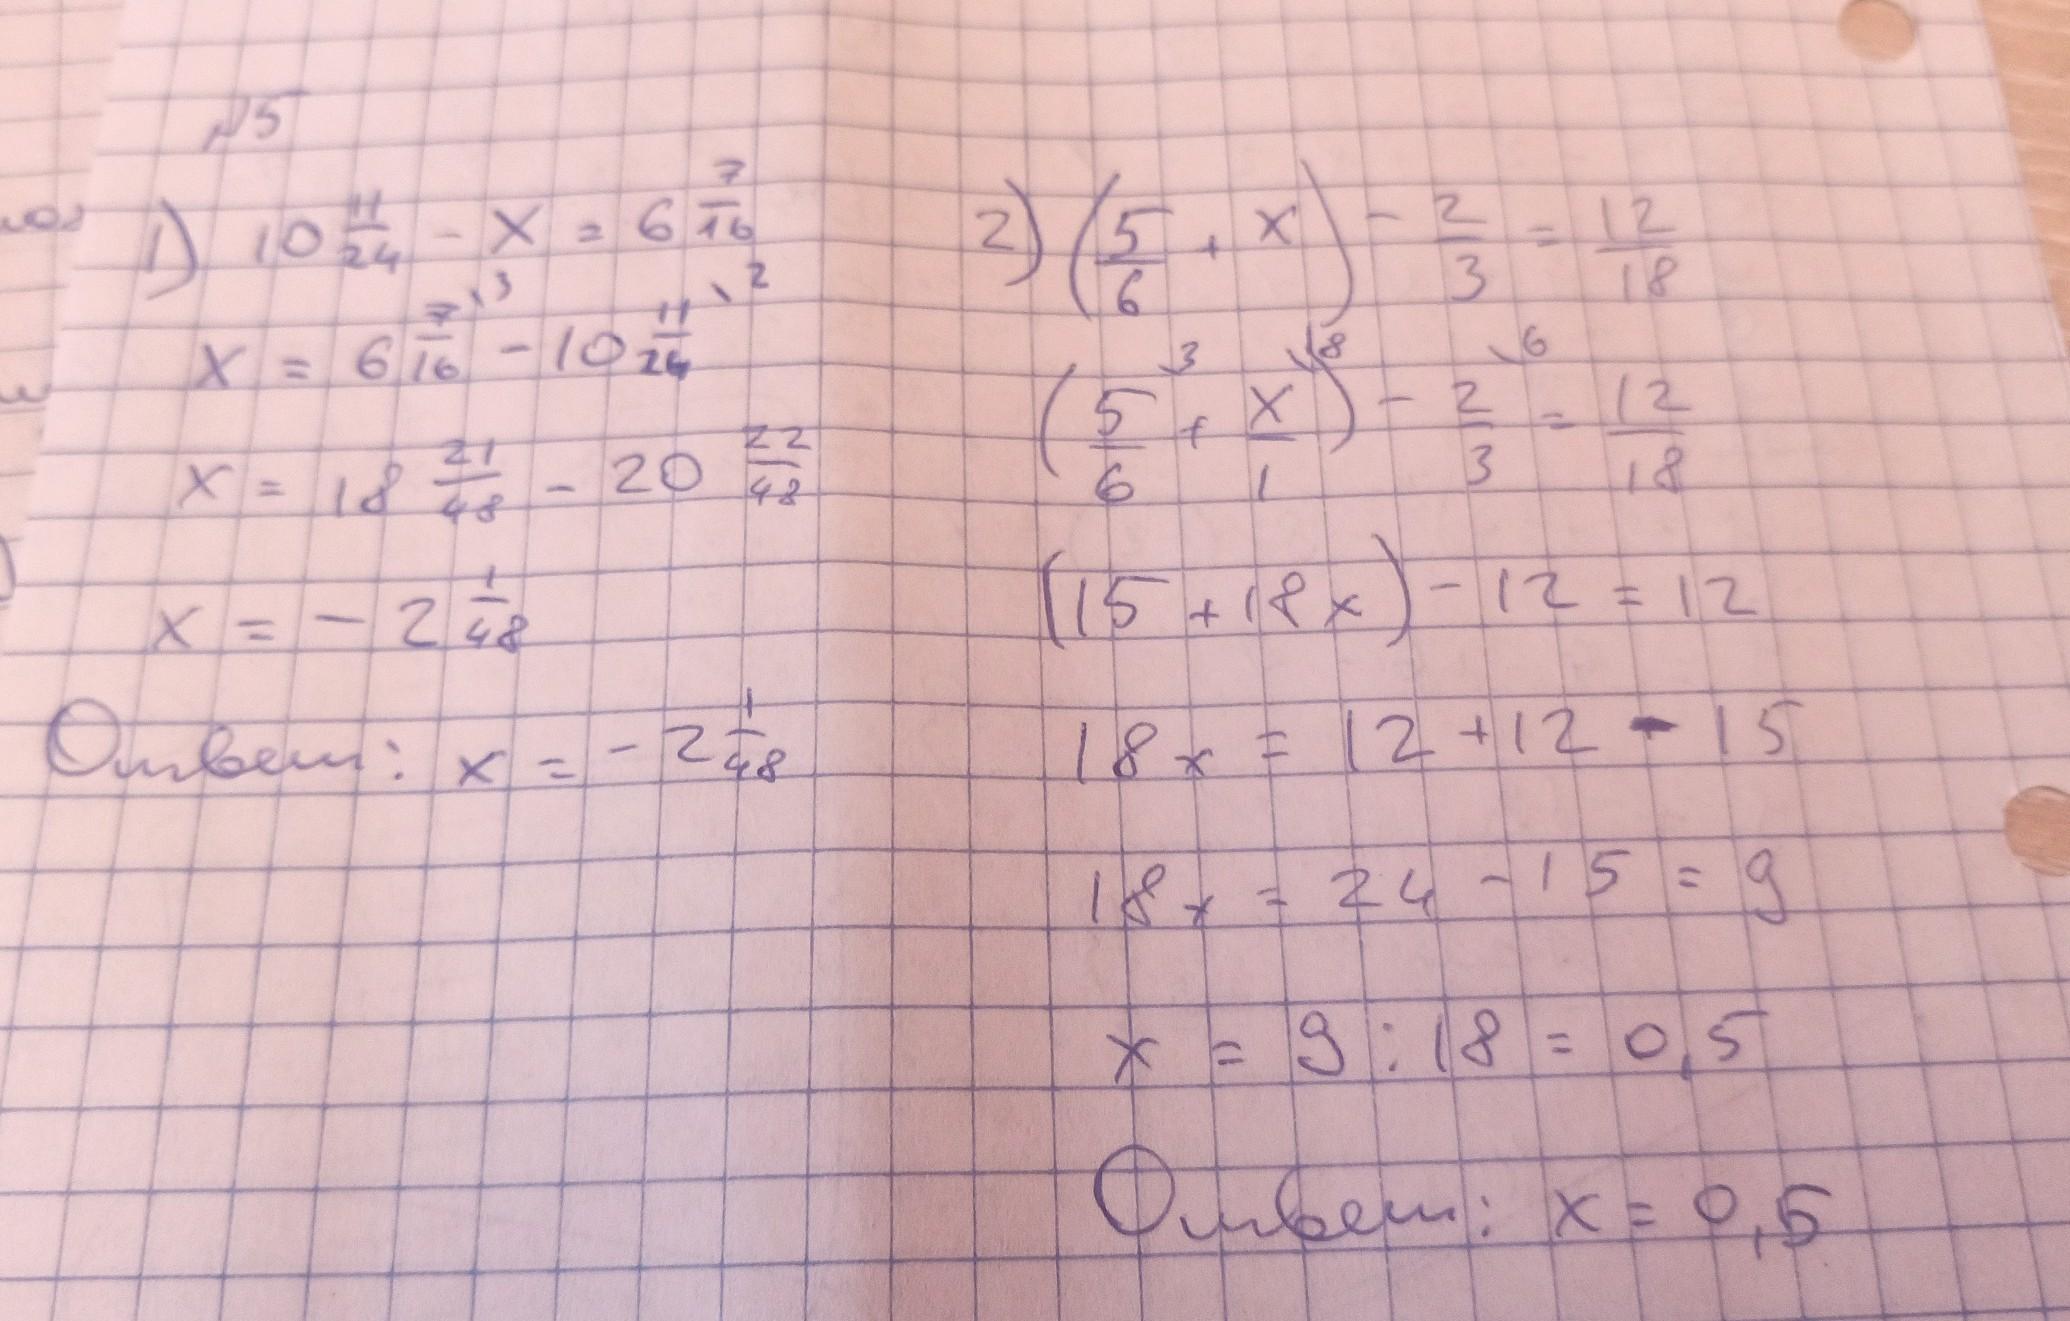 №5
1) 10 11/24 - x = 6 7/16
x = 6 7/16 \3 - 10 11/24 \2
x = 18 21/48 - 20 22/48
x = - 2 1/48
Ответ: x = - 2 1/48
2) (5/6 + x) - 2/3 = 12/18
(5/6 \3 + x/1 \18) - 2/3 \6 = 12/18
(15 + 18x) - 12 = 12
18x = 12 + 12 - 15
18x = 24 - 15 = 9
x = 9 : 18 = 0,5
Ответ: x = 0,5